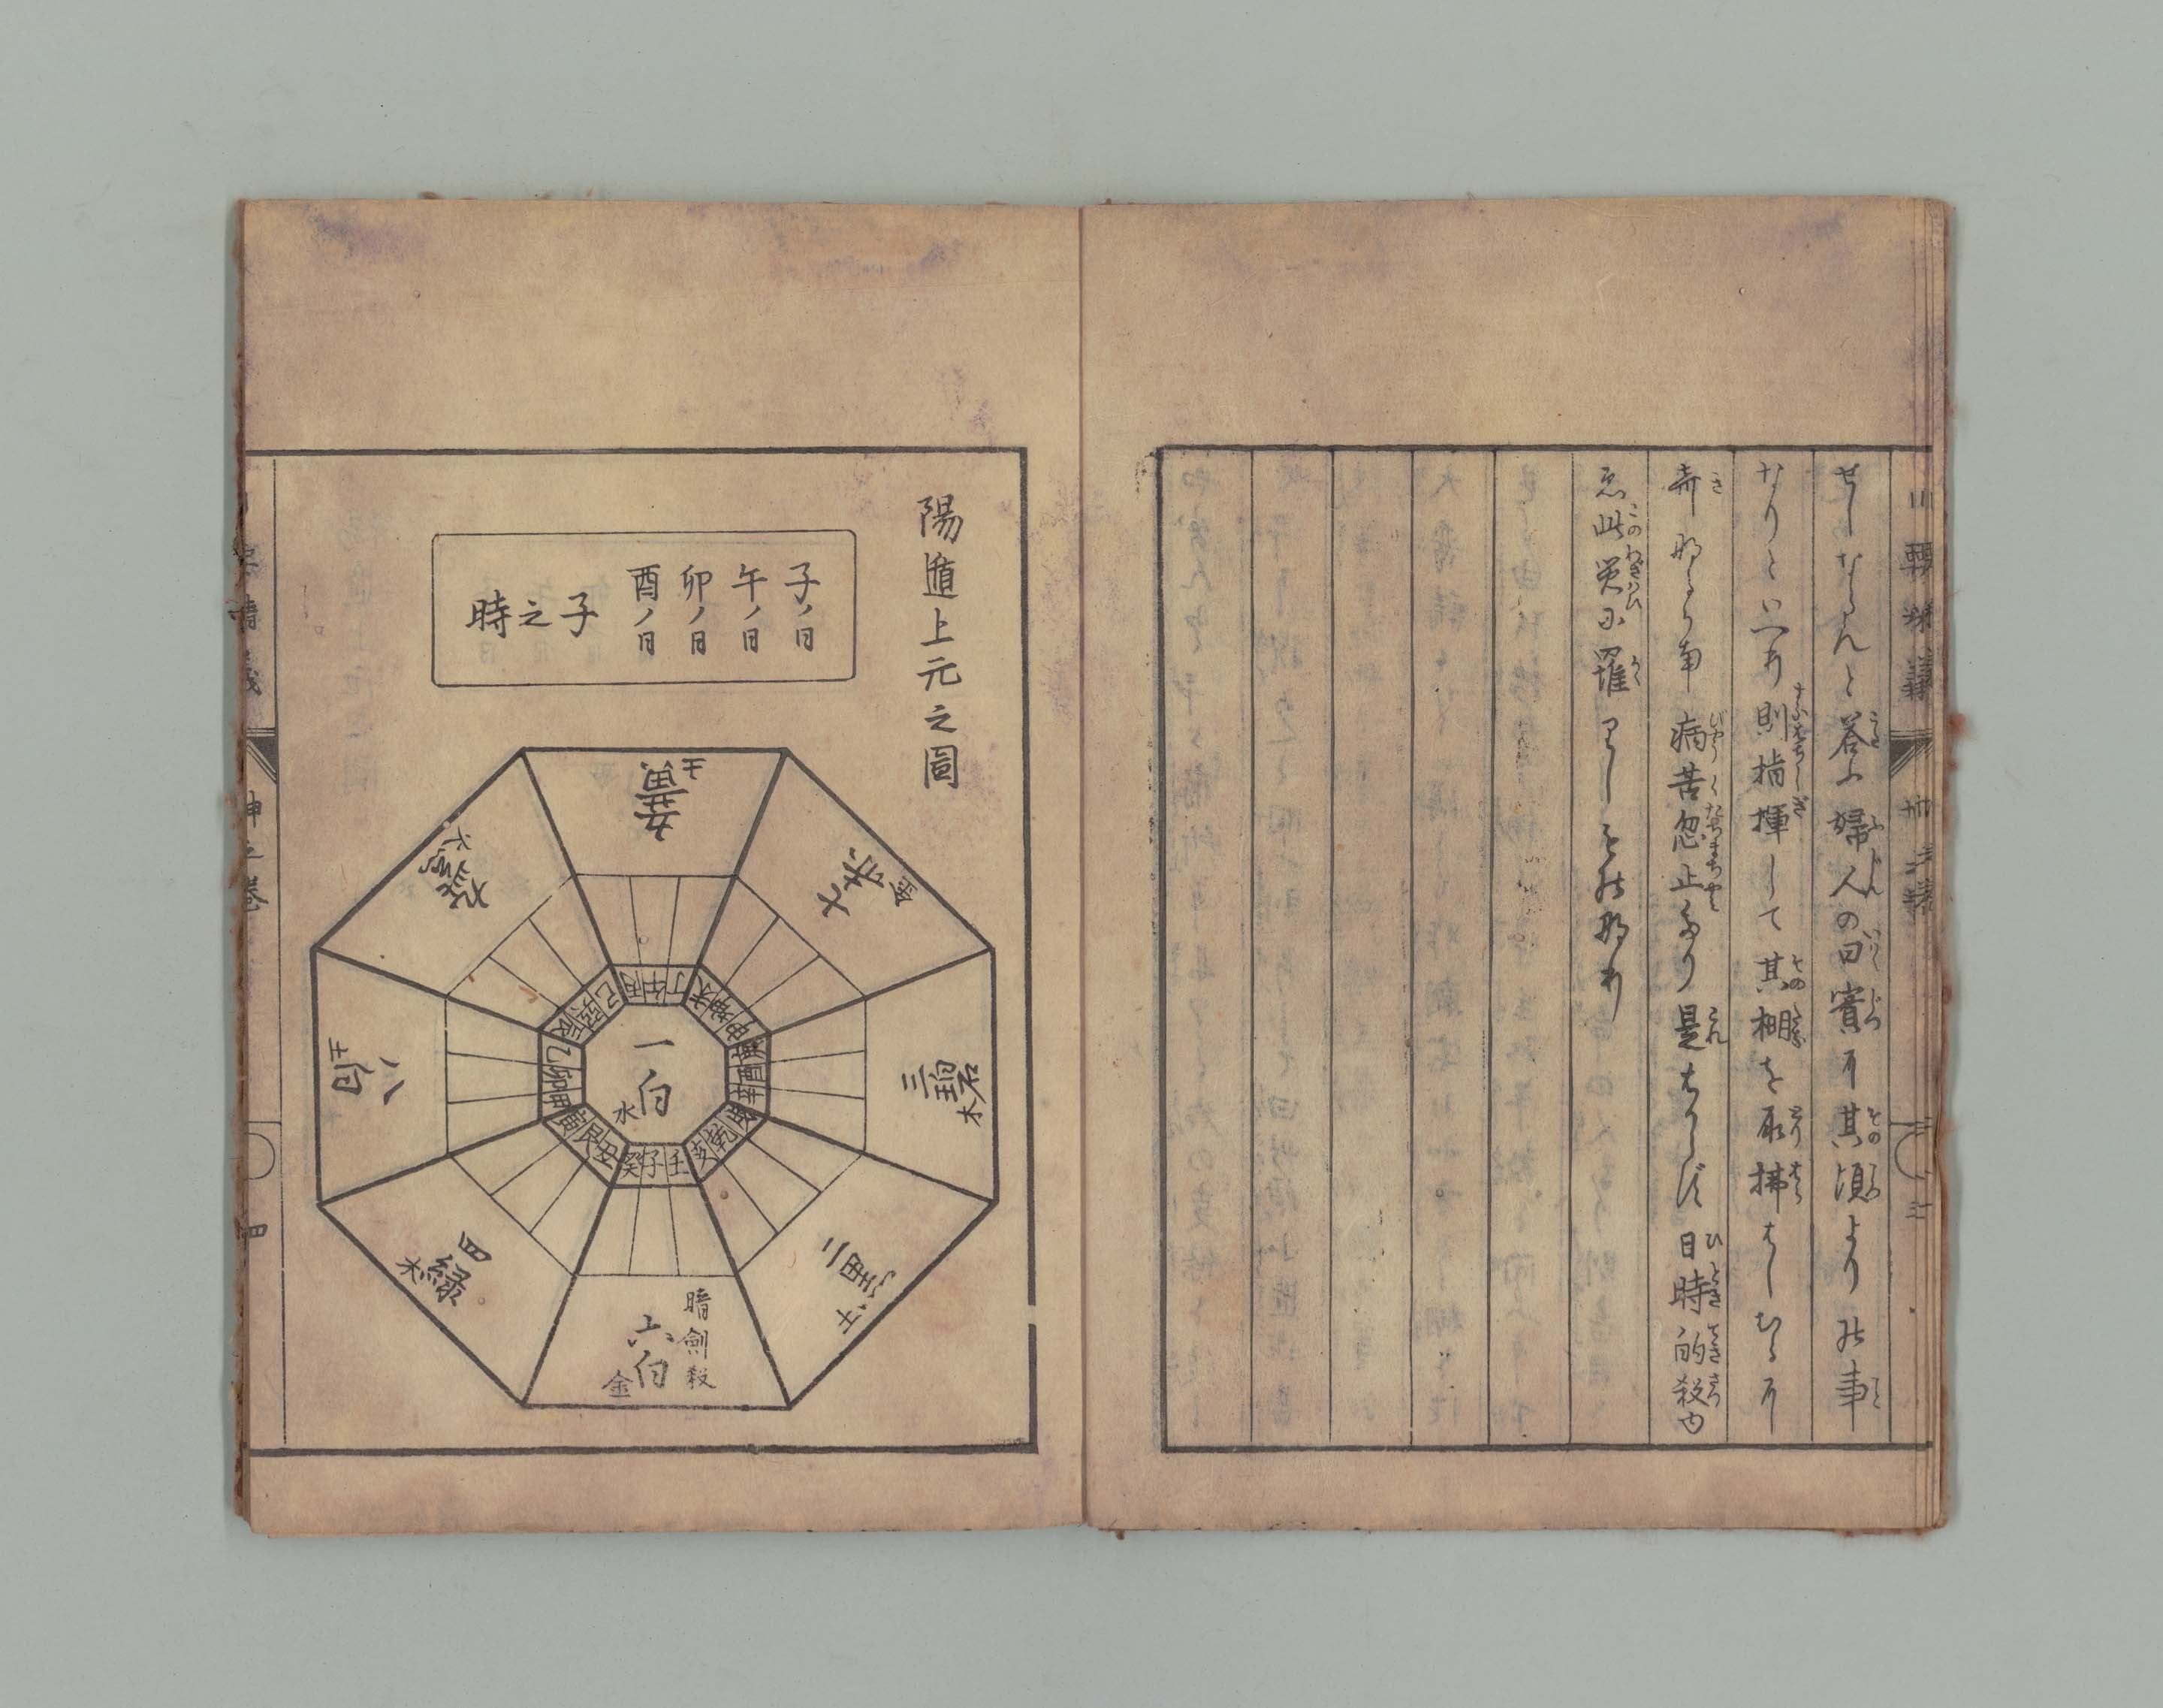 せしならんと答ふ婦人の曰實に其頃よりの事
なりといへり則指揮して其棚を取拂はしむるに
奇なるかな病苦忽止たり是はからず日時的殺の
忌此災に罹りしものなり
陽遁上元之圖
子ノ日
午ノ日
卯ノ日
酉ノ日
子之時
五黄
土
七赤
金
三碧
木
二黒
土
暗劍殺
六白
金
四緑
木
八白
土
九紫
火
一白
水
丙午丁
未坤申
庚酉辛
戌乾亥
壬子癸
丑艮寅
甲卯乙
辰巽巳
坤之巻
四